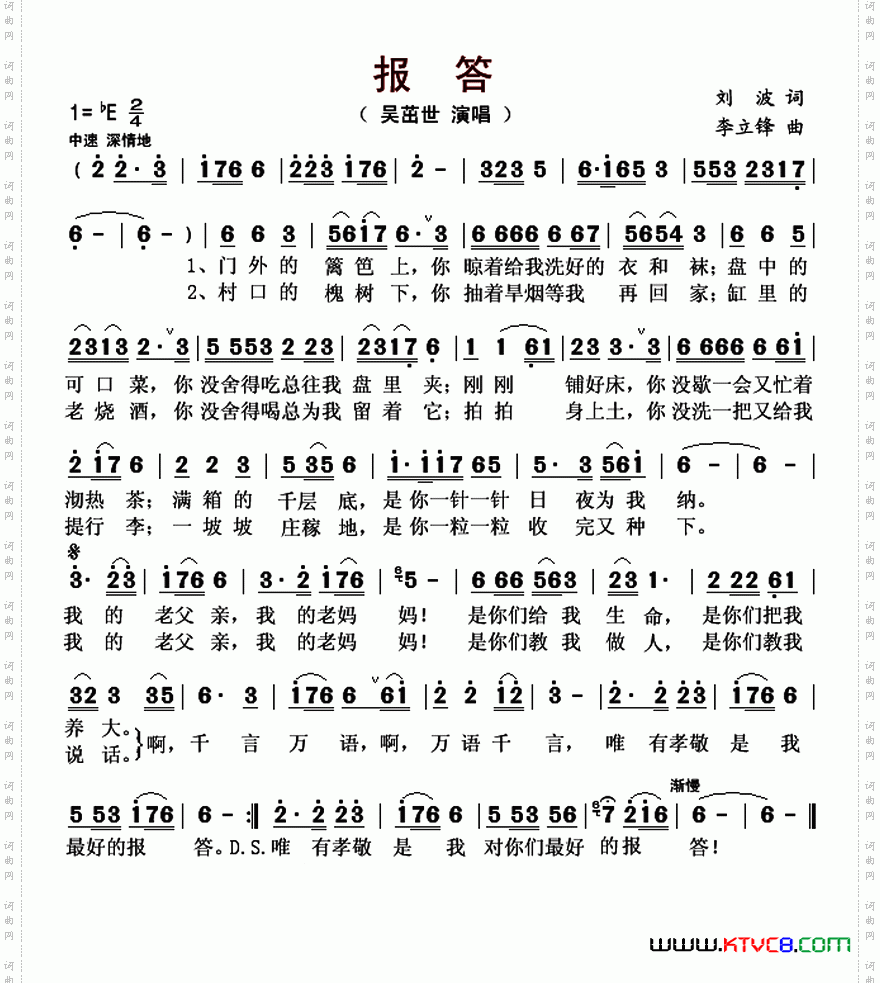 报 答
1=♭E 2/4
（ 吴茁世 演唱 ）
刘 波 词
李立锋 曲
中速 深情地
( 2 2· 3 | 1766 | 223 176 | 2 - | 323 5 | 6·165 3 | 553 2317 |
6 - | 6 - ) | 6 6 3 | 5617 6· 3 | 6 666 6 67 | 5654 3 | 6 6 5 |
1、门外的 篱笆上，你 晾着给我洗好的 衣和袜；盘中的
2、村口的 槐树下，你 抽着旱烟等我 再回家；缸里的
2313 2· 3 | 5 553 2 23 | 2317 6 | 1 1 61 | 23 3· 3 | 6 666 6 61 |
可口菜，你 没舍得吃总往我 盘里 夹；刚刚 铺好床，你 没歇一会又忙着
老烧酒，你 没舍得喝总为我 留着 它；拍拍 身上土，你 没洗一把又给我
2 17 6 | 2 2 3 | 5 35 6 | 1·117 65 | 5· 3 561 | 6 - | 6 - |
沏热茶；满箱的 千层底，是你一针一针 日 夜为我 纳。
提行李；一坡坡 庄稼地，是你一粒一粒 收 完又种 下。
3· 23 | 176 6 | 3· 2 176 | 5 - | 6 66 563 | 23 1· | 2 22 61 |
我的 老父亲，我的老妈 妈！ 是你们给我 生命，是你们把我
我的 老父亲，我的老妈 妈！ 是你们教我 做人，是你们教我
32 3 35 | 6· 3 | 176 6 61 | 2 2 12 | 3 - | 2· 2 23 | 176 6 |
养大。
说话。
啊，千 言 万 语，啊，万语千 言，唯 有孝敬 是 我
渐慢
5 53 176 | 6 - :| 2· 2 23 | 176 6 | 5 53 56 | 7 216 | 6 - | 6 - ‖
最好的报 答。D.S.唯 有孝敬 是 我 对你们最好 的报 答！
www.KTVC8.com